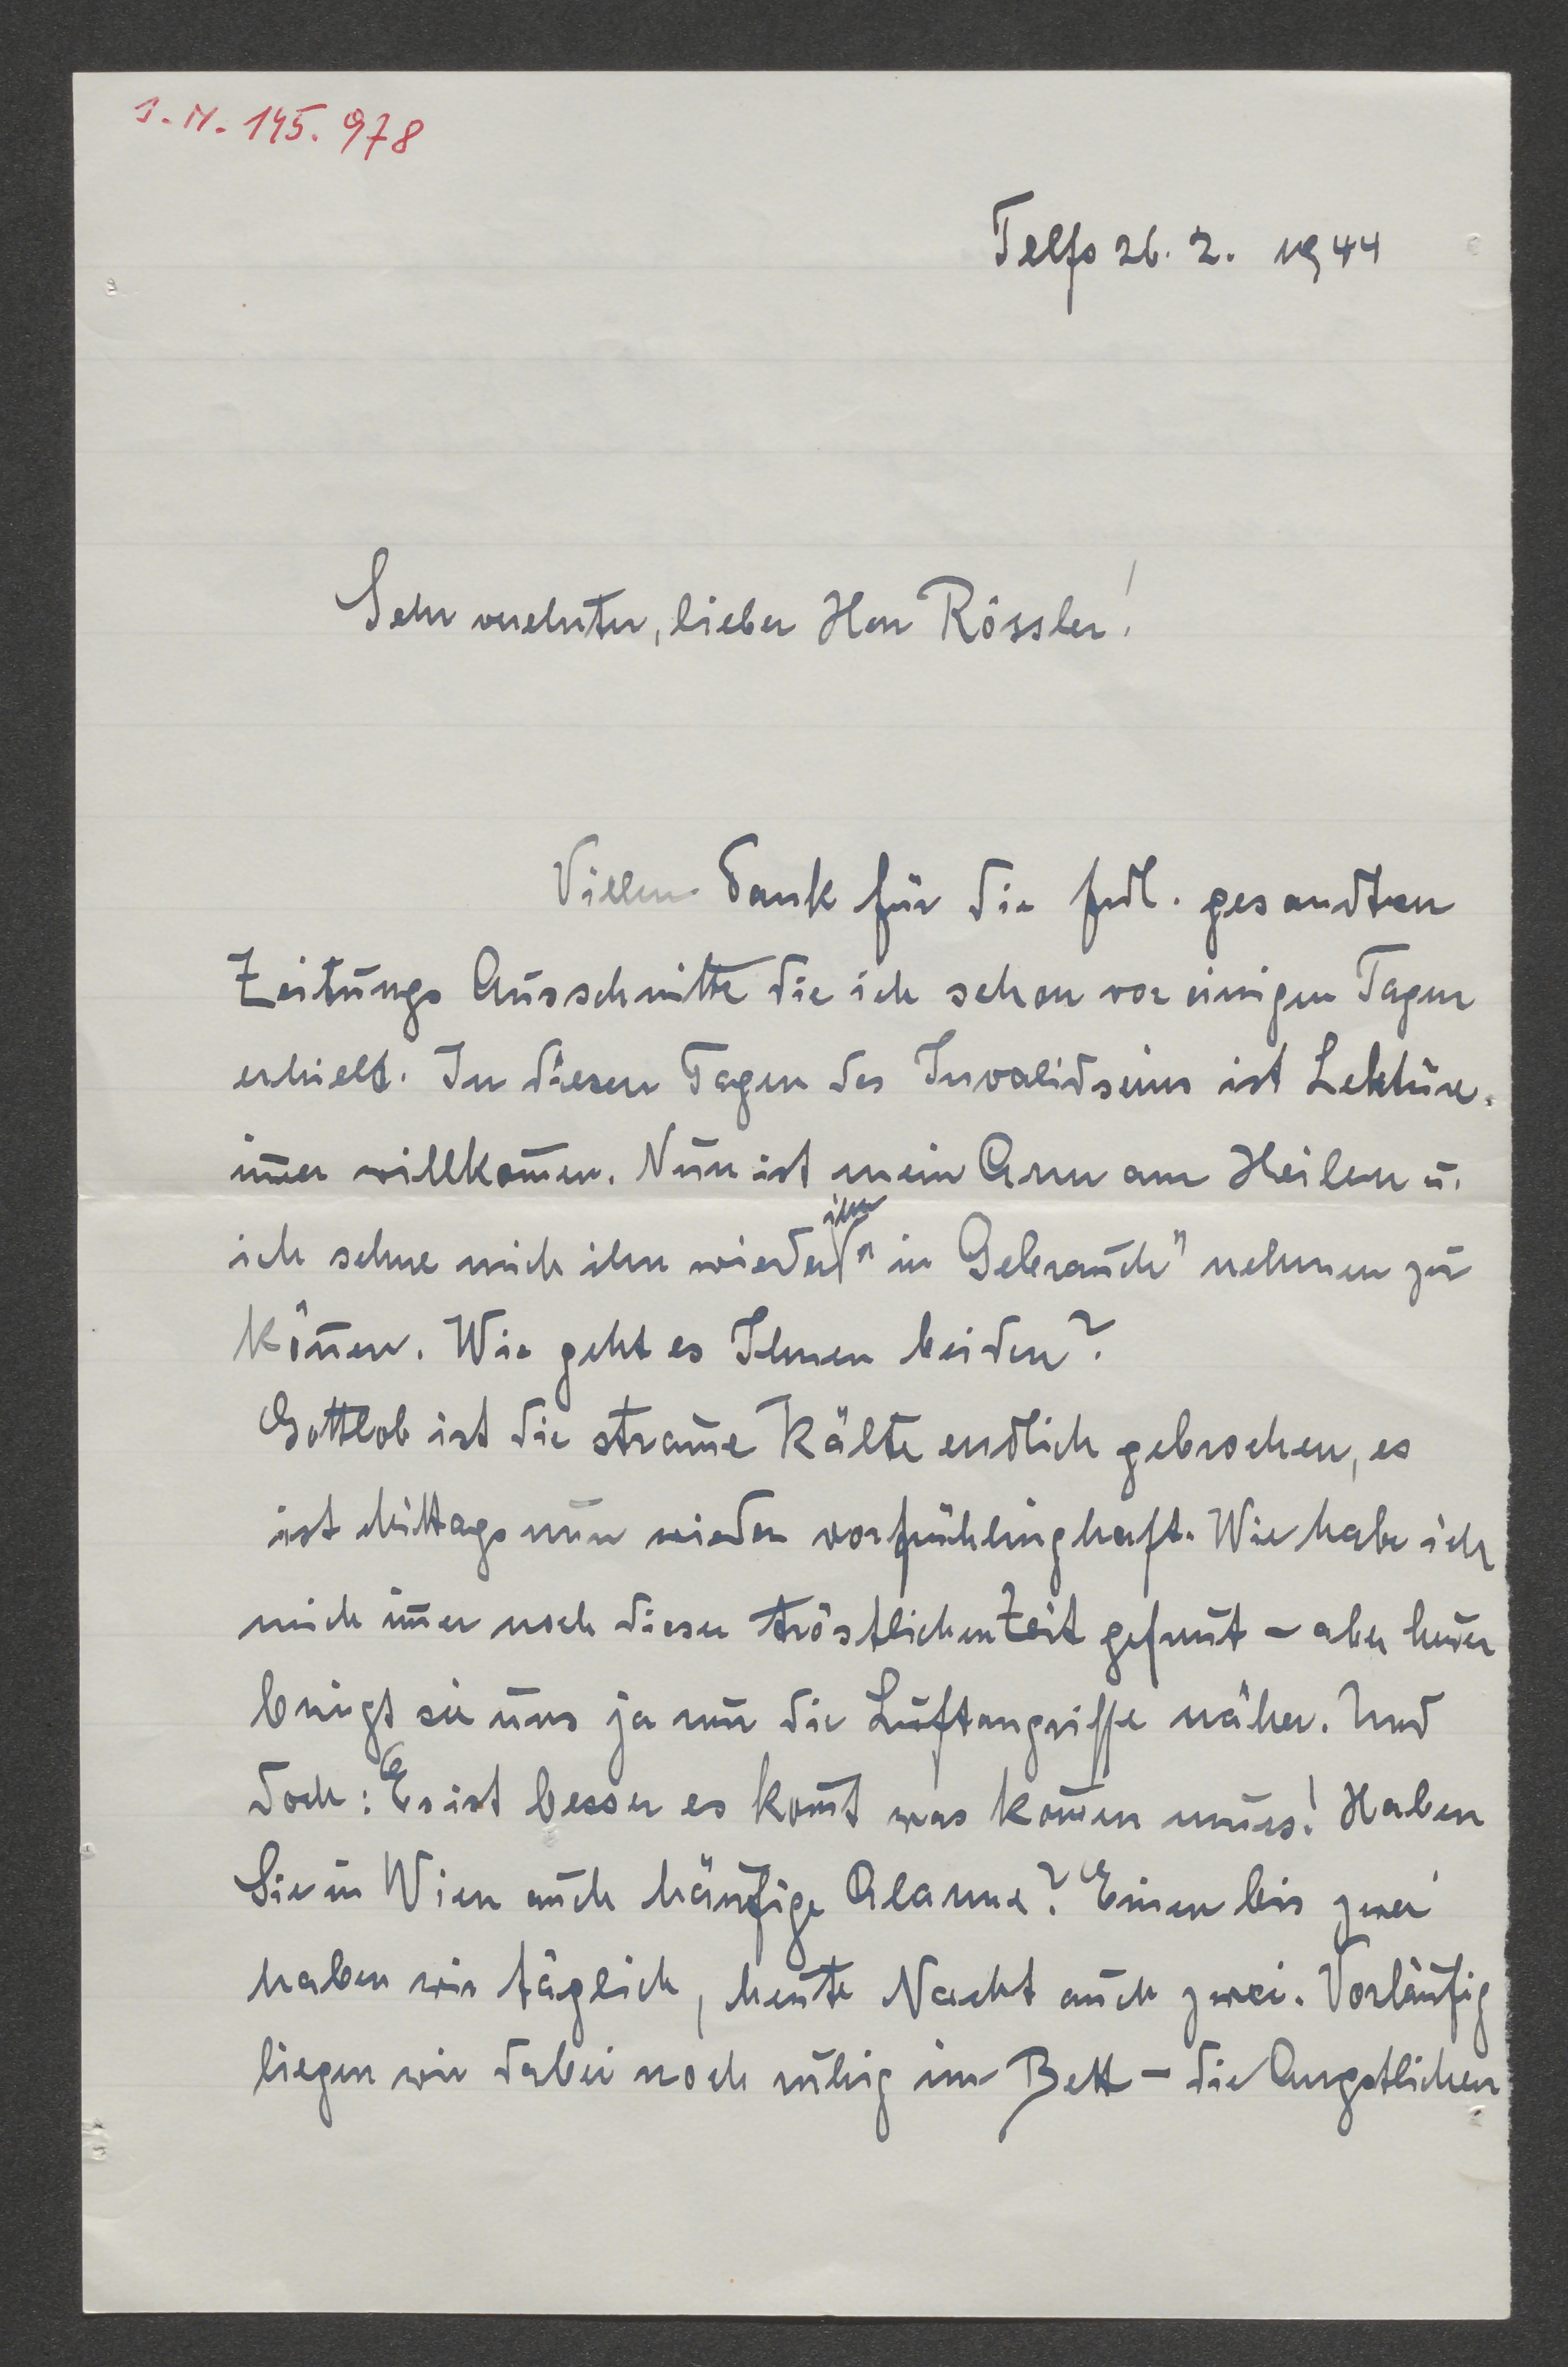 I.N. 145.978
Telfs 26. 2. 1944
Sehr verehrter, lieber Herr Rössler!
Vielen Dank für die frdl. gesandten
Zeitungs Ausschnitte die ich schon vor einigen Tagen
erhielt. In diesen Tagen des Invalidseins ist Lektüre
im̅er willkom̅en. Nun ist mein Arm am Heilen u.
ich sehne mich ihn wieder "in Gebrauch" nehmen zu
kön̅en. Wie geht es Ihnen beiden?
Gottlob ist die stram̅e Kälte endlich gebrochen, es
ist Mittags nun wieder vorfrühlinghaft. Wie habe ich
mich im̅er noch dieser tröstlichen Zeit gefreut – aber heuer
bringt sie uns ja nur die Luftangriffe näher. Und
doch: Es ist besser es kom̅t was kom̅en muss! Haben
Sie in Wien auch häufige Alarme? Einen bis zwei
haben wir täglich, heute Nacht auch zwei. Vorläufig
liegen wir dabei noch ruhig im Bett – die Ängstlichen